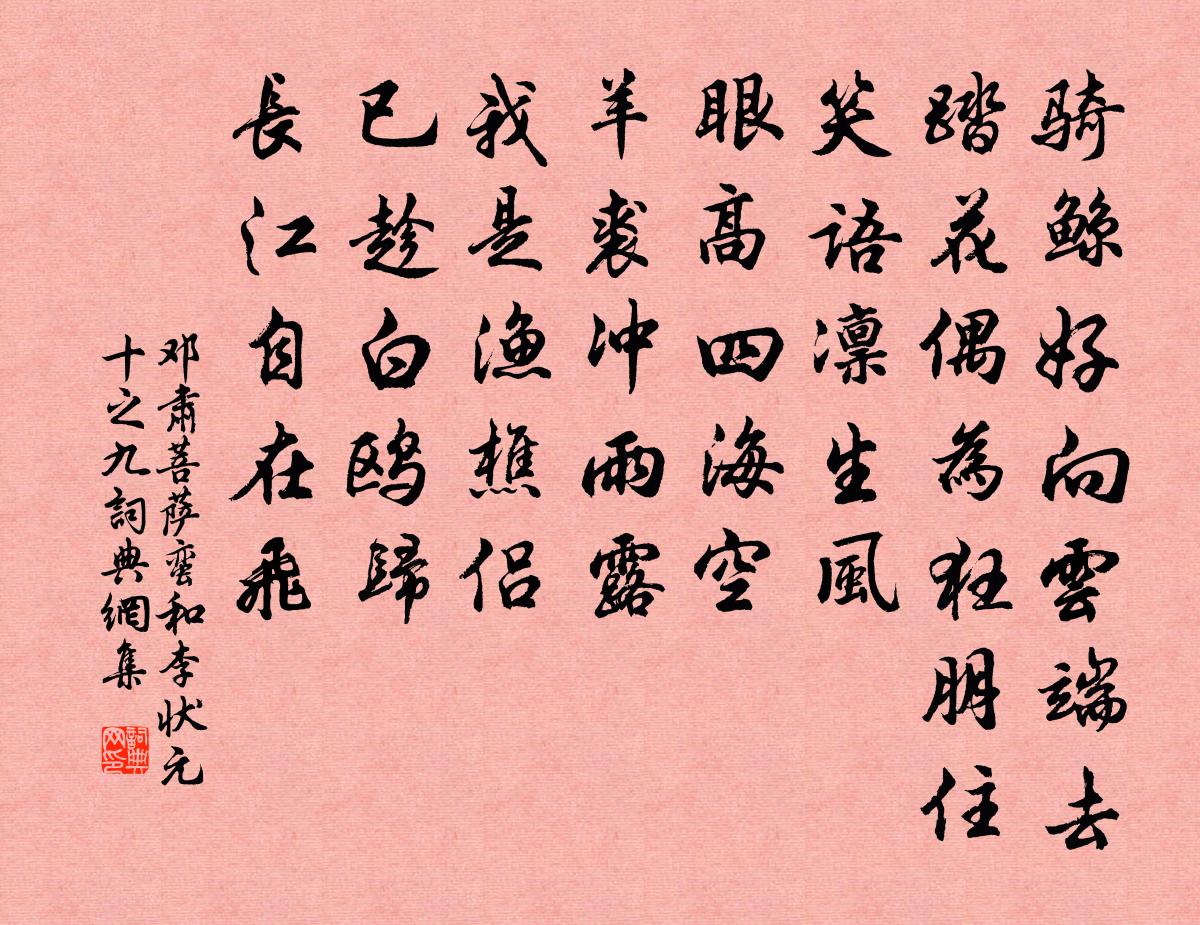 骑鲸好向雲端去
踏花偶為狂朋住
笑語凛生風
眼高四海空
羊裘冲雨露
我是漁樵侣
已趁白鸥歸
長江自在飛
邓肃菩萨蛮和李状元
十之九詞典網集
詞典网印